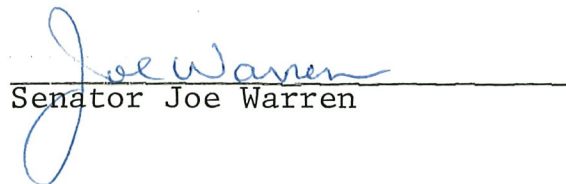 Joe Warren
Senator Joe Warren